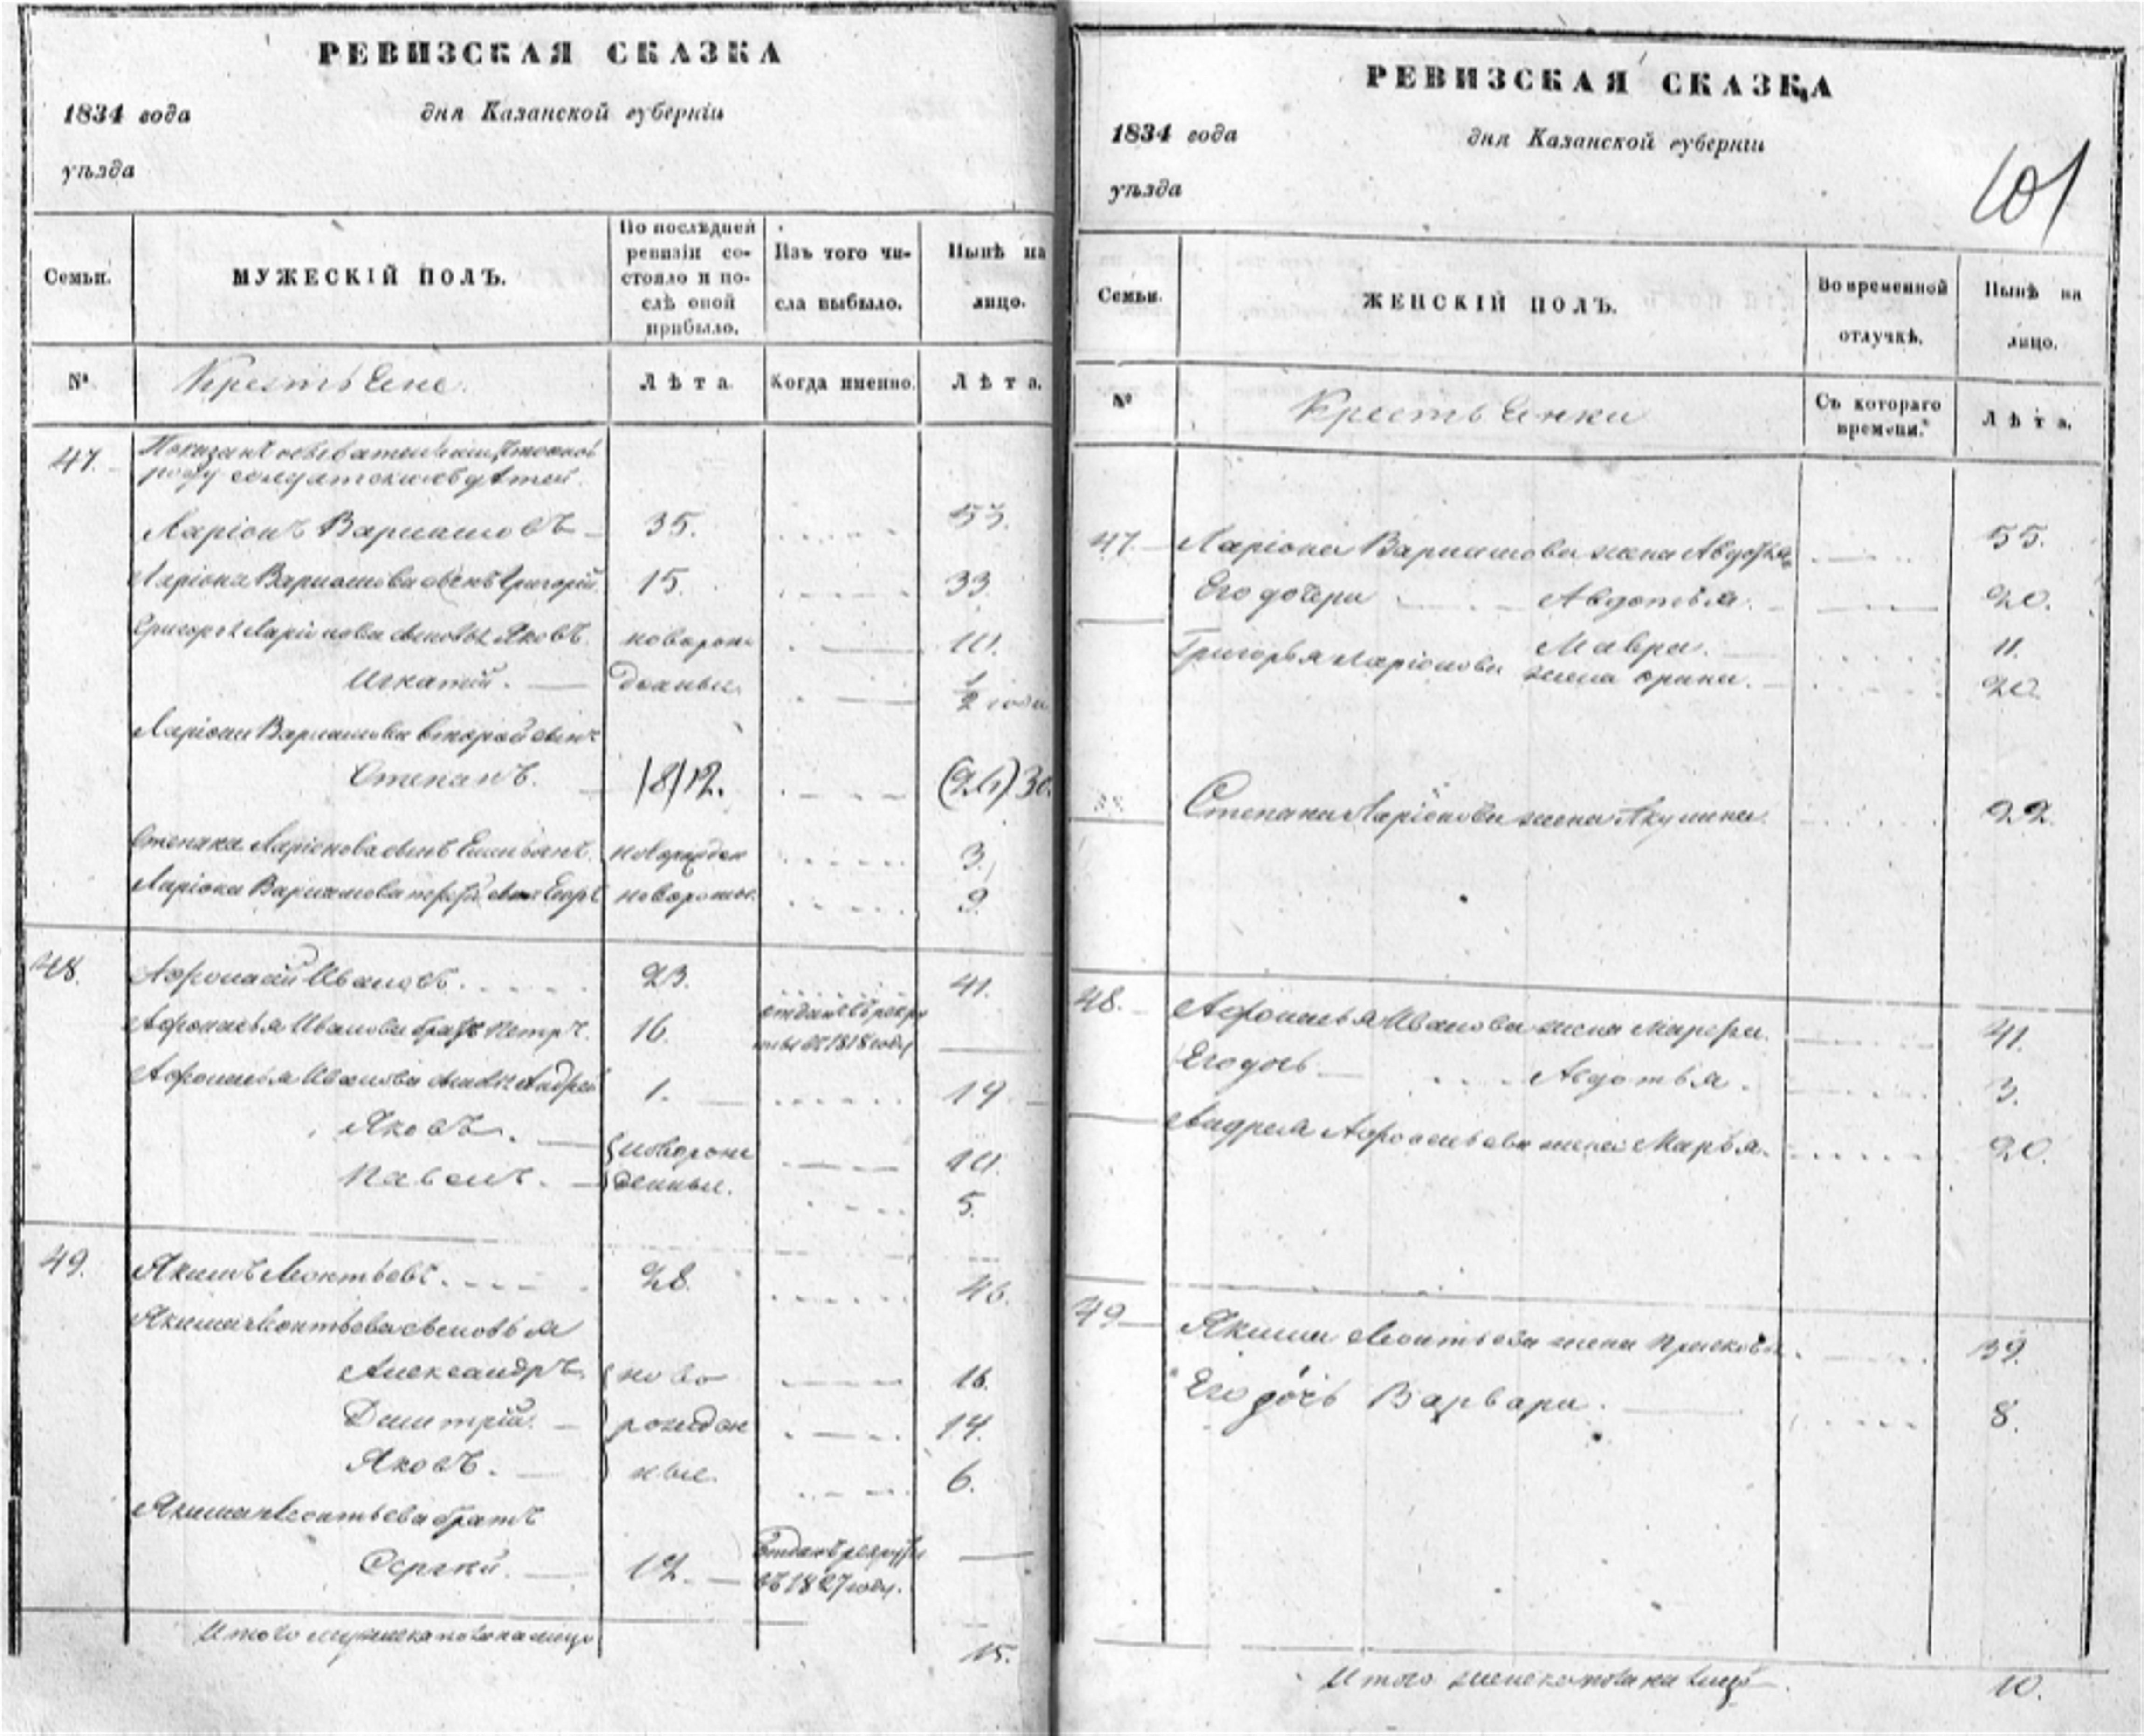 РЕВИЗСКАЯ СКАЗКА
1834 года дня Казанской губерніи
уѣзда
Семьи.
МУЖЕСКІЙ ПОЛЪ.
По послѣдней
ревизіи со-
стояло и по-
слѣ оной
прибыло.
Изъ того чи-
сла выбыло.
Нынѣ на
лицо.
№
Крестьяне.
Лѣта
Когда именно.
Лѣта.
47.
Ларіонъ Варламовъ 35. 53.
Ларіона Варламова сынъ Григорій 15. 33.
Григорья Ларіонова сыновья Яковъ новорож 10.
Игнатій. денные ½ года
Ларіона Варламова второй сынъ
Степанъ. 12. 30.
Степана Ларіонова сынъ Емельянъ новорожден 3.
Ларіона Варламова сынъ Егоръ новорожд. 9.
48. Афонасій Ивановъ. 23. 41.
Афонасья Иванова братъ Петръ. 16. отданъ въ рекру
ты въ 1818 году
Афонасья Иванова сыновья Андрей 1. 19
Яковъ. новорож 10.
Павелъ. денные. 5.
49. Якимъ Леонтьевъ. 28. 46.
Якима Леонтьева сыновья
Александръ ново 16.
Дмитрій. рожден 14.
Яковъ. ные. 6.
Якима Леонтьева братъ
Сергѣй. 12. Отданъ рекруты
въ 1827 году.
Итого мужеска пола на лицо 15.
РЕВИЗСКАЯ СКАЗКА
1834 года дня Казанской губерніи
101
уѣзда
Семьи.
ЖЕНСКІЙ ПОЛЪ.
Во временной
отлучкѣ.
Нынѣ на
лицо.
№
Крестьянки
Съ котораго
времени.
Лѣта.
47. Ларіона Варламова жена Авдотья 55.
Его дочери Авдотья. 20.
Мавра. 11.
Григорья Ларіонова жена Орина. 20.
Степана Ларіонова жена Акулина 22.
48. Афонасья Иванова жена Марфа. 41.
Его дочь Авдотья. 3.
Андрея Афонасьева жена Марья. 20.
49 Якима Леонтьева жена Прасковья. 39.
Его дочь Варвара. 8.
Итого женска пола на лицо 10.